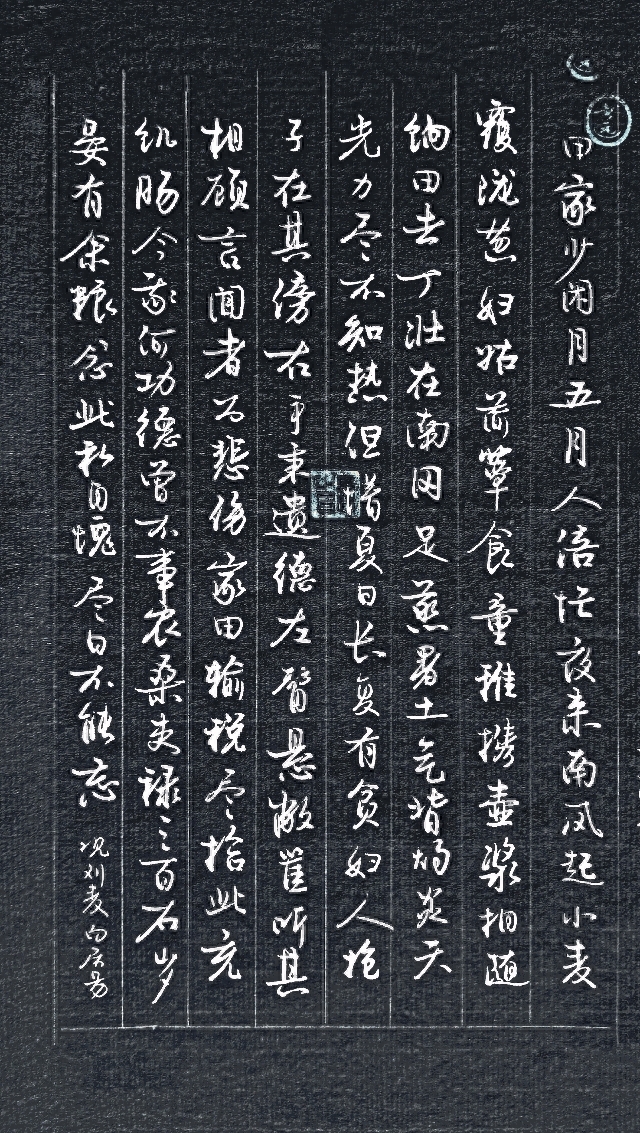 田家少闲月五月人倍忙夜来南风起小麦
覆陇黄妇姑荷箪食童稚携壶浆相随
饷田去丁壮在南冈足蒸暑土气背灼炎天
光力尽不知热但惜夏日长复有贫妇人抱
子在其傍右手秉遗穗左臂悬敝筐听其
相顾言闻者为悲伤家田输税尽拾此充
饥肠今我何功德曾不事农桑吏禄三百石岁
晏有余粮念此私自愧尽日不能忘
观刈麦白居易